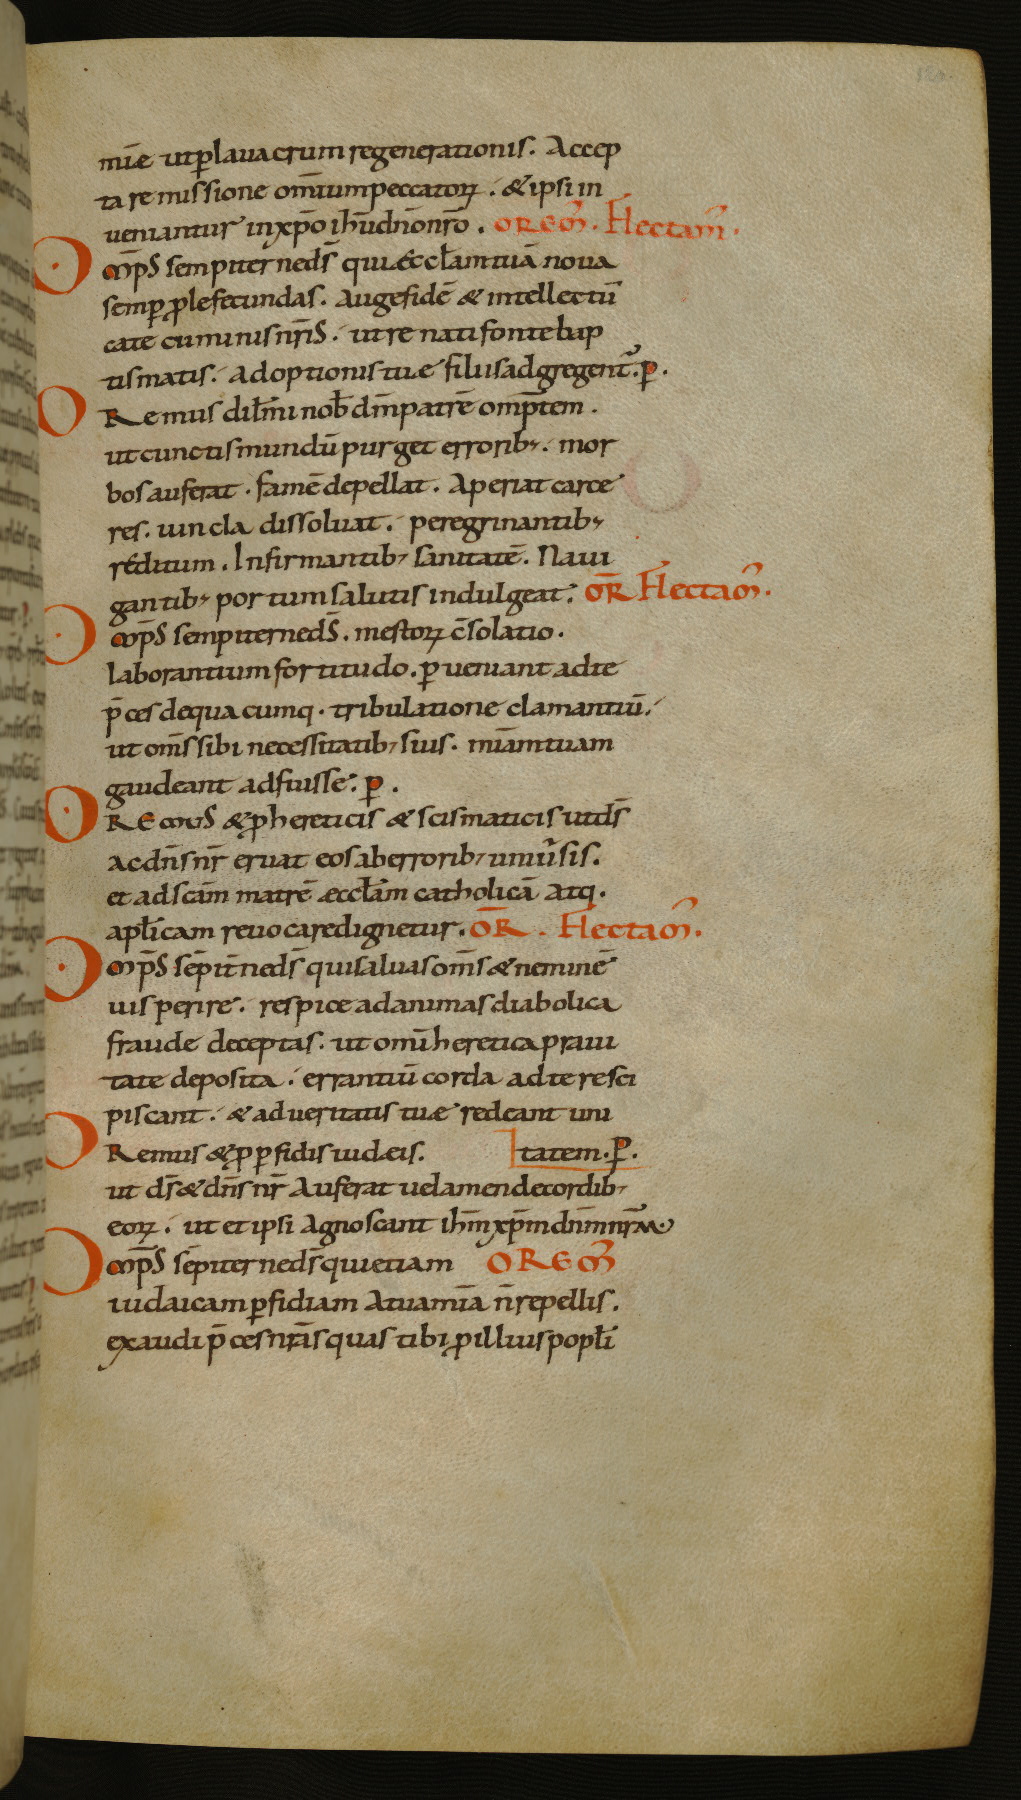 mīe ut ꝑ lavacrum regenerationis. Accep
ta remissione om̄ium peccatoꝝ. & ipsi in
veniantur in xp̄o ih̄u dn̄o nr̄o. OREM̄. Flectam̄.
Om̄ps̄ sempiterne ds̄ qui ęccl̄am tuā nova
semꝑ ꝓle fecundas. Auge fidē & intellectū
catecuminis nr̄is. ut renati fonte bap
tismatis. Adoptionis tuę filiis adgregent̄. ꝑ.
Oremus dil̄mi nob̄ dm̄ patrē omp̄tem.
ut cunctis mundū purget errorib; mor
bos auferat. famē depellat. Aperiat carce
res. vincla dissolvat. peregrinantib;
reditum. Infirmantib; sanitatē. Navi
gantib; portum salutis indulgeat. OR̄ Flectam̄.
Om̄ps̄ sempiterne ds̄. mestoꝝ c̄solatio.
laborantium fortitudo. ꝑveniant ad te
p̄ces de quacumq. tribulatione clamantiū.
ut om̄s sibi necessitatib; suis. mīam tuam
gaudeant adfuisse. ꝑ.
OREMUS & ꝓ hereticis & scismaticis ut ds̄
ac dn̄s nr̄ eruat eos ab errorib; univ̄sis.
et ad sc̄am matrē æccl̄am catholicā atq.
apl̄icam revocare dignetur. OR̄. Flectam̄.
Om̄ps̄ sēpit̄ne ds̄ qui salvas om̄s & neminē
vis perire. respice ad animas diabolica
fraude deceptas. ut omī heretica pravi
tate deposita. errantiū corda ad te resci
piscant. & ad veritatis tuæ redeant uni
Oremus & ꝓ ꝑfidis iudæis. tatem. P.
ut ds̄ & dn̄s nr̄ Auferat velamen de cordib;
eoꝝ. ut et ipsi Agnoscant ih̄m xp̄m dn̄m nr̄m.
Om̄ps̄ sēpiterne ds̄ qui etiam OREM̄
iudaicam ꝑfidiam A tua mīa n̄ repellis.
exaudi p̄ces nr̄as quas tibi ꝓ illius popl̄i